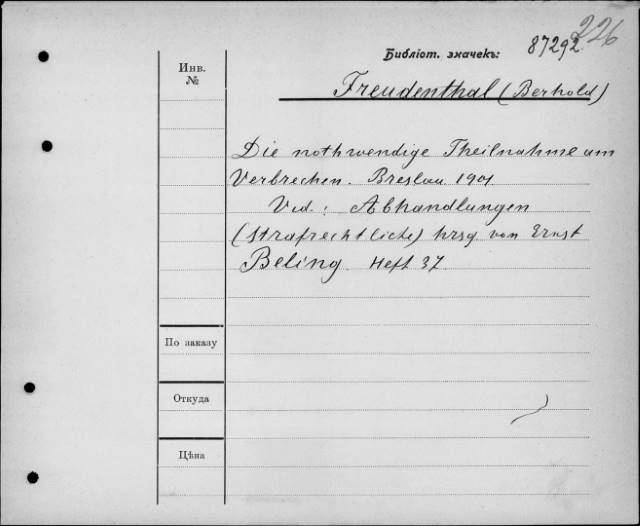 226
Библіот. значекъ: 87292
Инв.
№
Freudenthal (Berhold)
Die nothwendige Theilnahme am
Verbrechen. Breslau. 1901.
Vid.: Abhandlungen
(strafrechtliche) hrsg. von Ernst
Beling. Heft 37
По заказу
Откуда
Цѣна